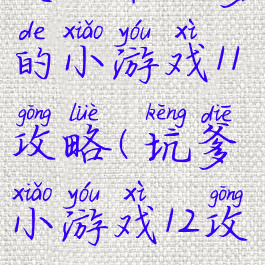 de xiǎo yóu xì
的小游戏11
gōng lüè kēng diē
攻略(坑爹
xiǎo yóu xì gōng
小游戏12攻